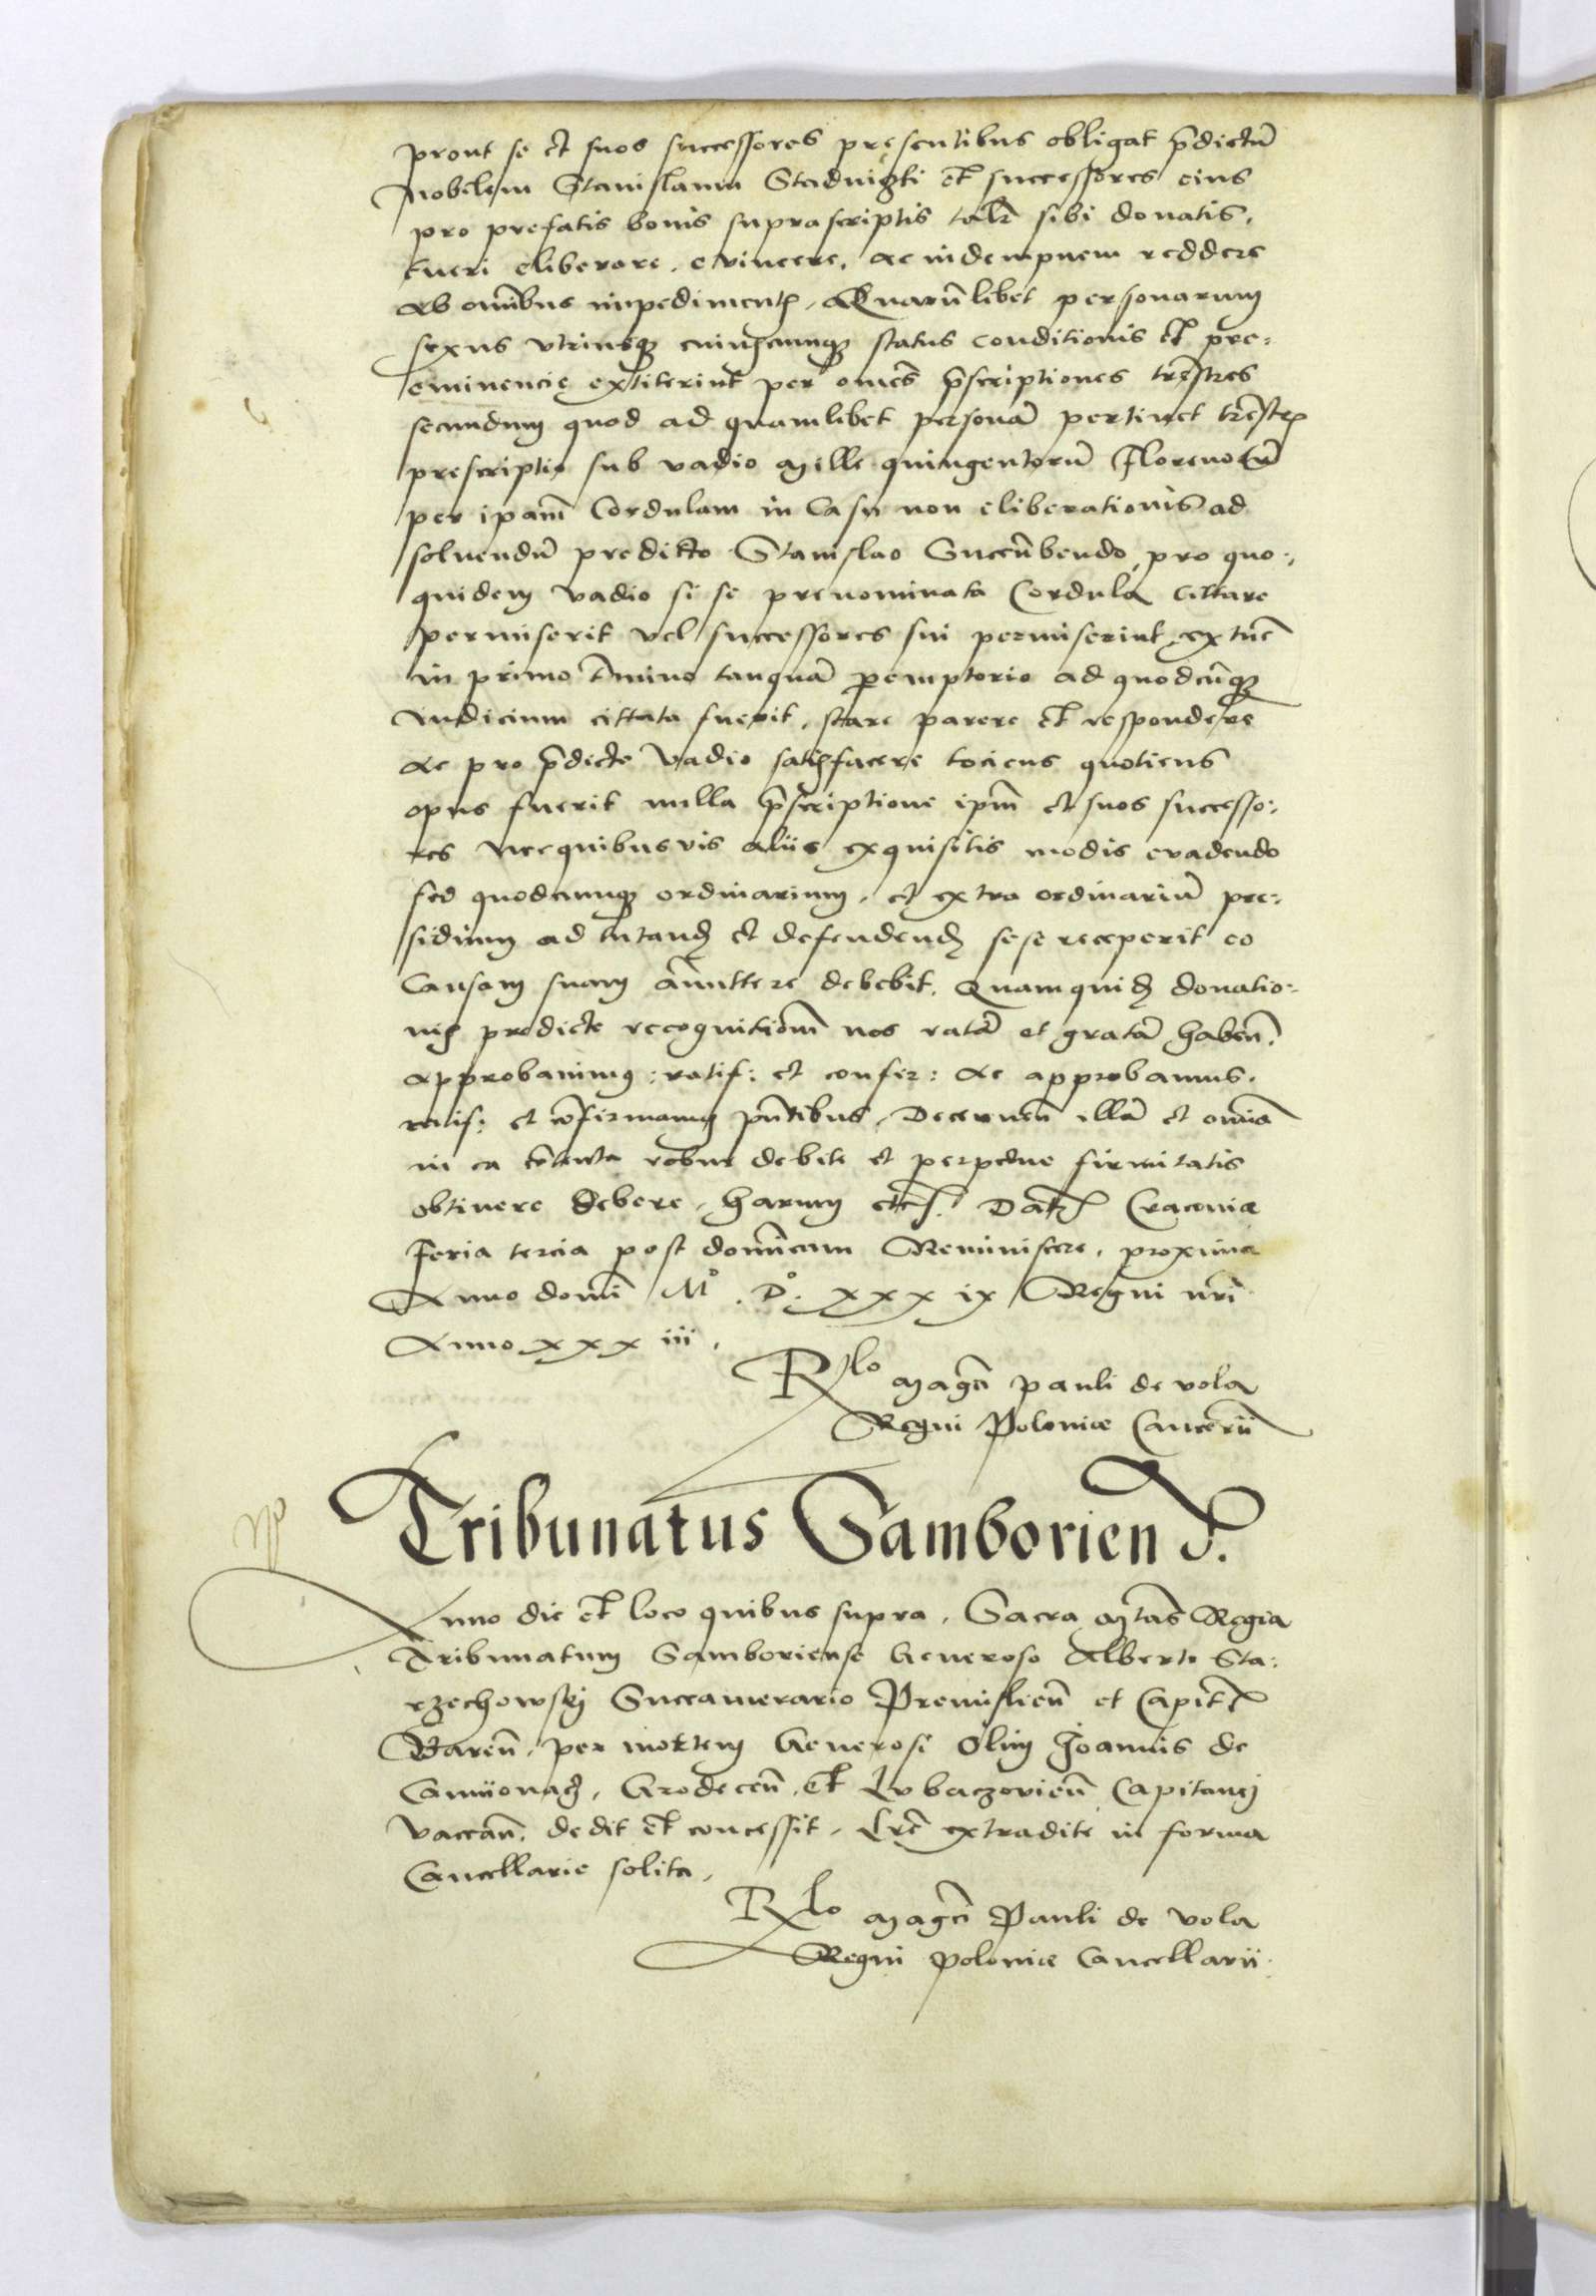 prout se et suos successores pręsentibus obligat p̄dictū
Nobilem Stanislaum Stadnigki et successores eius
pro prefatis bonis suprascriptis talr̄ sibi donatis,
tueri eliberare, evincere, ac indempnem reddere
ab om̄ibus impediment̄, Quarūlibet personarum
sexus vtriusqȝ cuiuscunqȝ status conditionis et pre:
eminencię extiterint per om̄es p̄scriptiones tr̄estres
secundum quod ad quamlibet personā pertinet tr̄estr̄
prescriptio sub vadio Mille quingentorū Florenorū
per ip̄am Cordulam in Casu non eliberationis ad
soluendū predicto Stanislao Succūbendo, pro quo:
quidem vadio si se prenominata Cordula cittare
permiserit vel successores sui permiserint, ex tūc
in primo t̄mino tanquā peremptorio ad quodcūqȝ
Iudicium cittata fuerit, stare parere et respondere
ac pro p̄dicto Vadio satisfacere tociens quotiens
opus fuerit nulla p̄scriptione ip̄m et suos successo:
res nec quibusvis aliis exquisitis modis evadendo
sed quodcunqȝ ordinarium, et extra ordinariū pre:
sidium ad tutand et defendend sese receperit eo
Causam suam āmittere debebit, Quamquid donatio:
nis predicte recognitionem nos ratā et gratā haben̄,
approbauimus: ratif: et confir: ac approbamus,
ratif: et cōfirmamus pn̄tibus, Decernen̄ illā et om̄ia
in ea cōtenta robur debite et perpetue firmitatis
obtinere debere, harum etc. Dat̄ Cracoviæ
Feria tercia post domīcam Reminiscere, proxima
Anno domī Mº. Dº. xxx ix Regni nr̄i
Anno xxx iii.
Rlo Maḡci Pauli de vola
Regni Poloniæ Cancerii
Tribunatus Samborien d.
Anno die et loco quibus supra, Sacra Mtās Regia
Tribunatum Samboriense Generoso Alberto Sta:
rzechowskj Succamerario Premislien̄ et Capit̄
Baren̄, per mortem Generosi Olim Joannis de
Grodecen̄, et Lvbaczovien̄ Capitanej
vaccan̄, dedit et concessit, Lr̄e extradite in forma
Cancellarie solita,
Rlo Maḡci Pauli de vola
Regni Poloniæ Cancellarii.